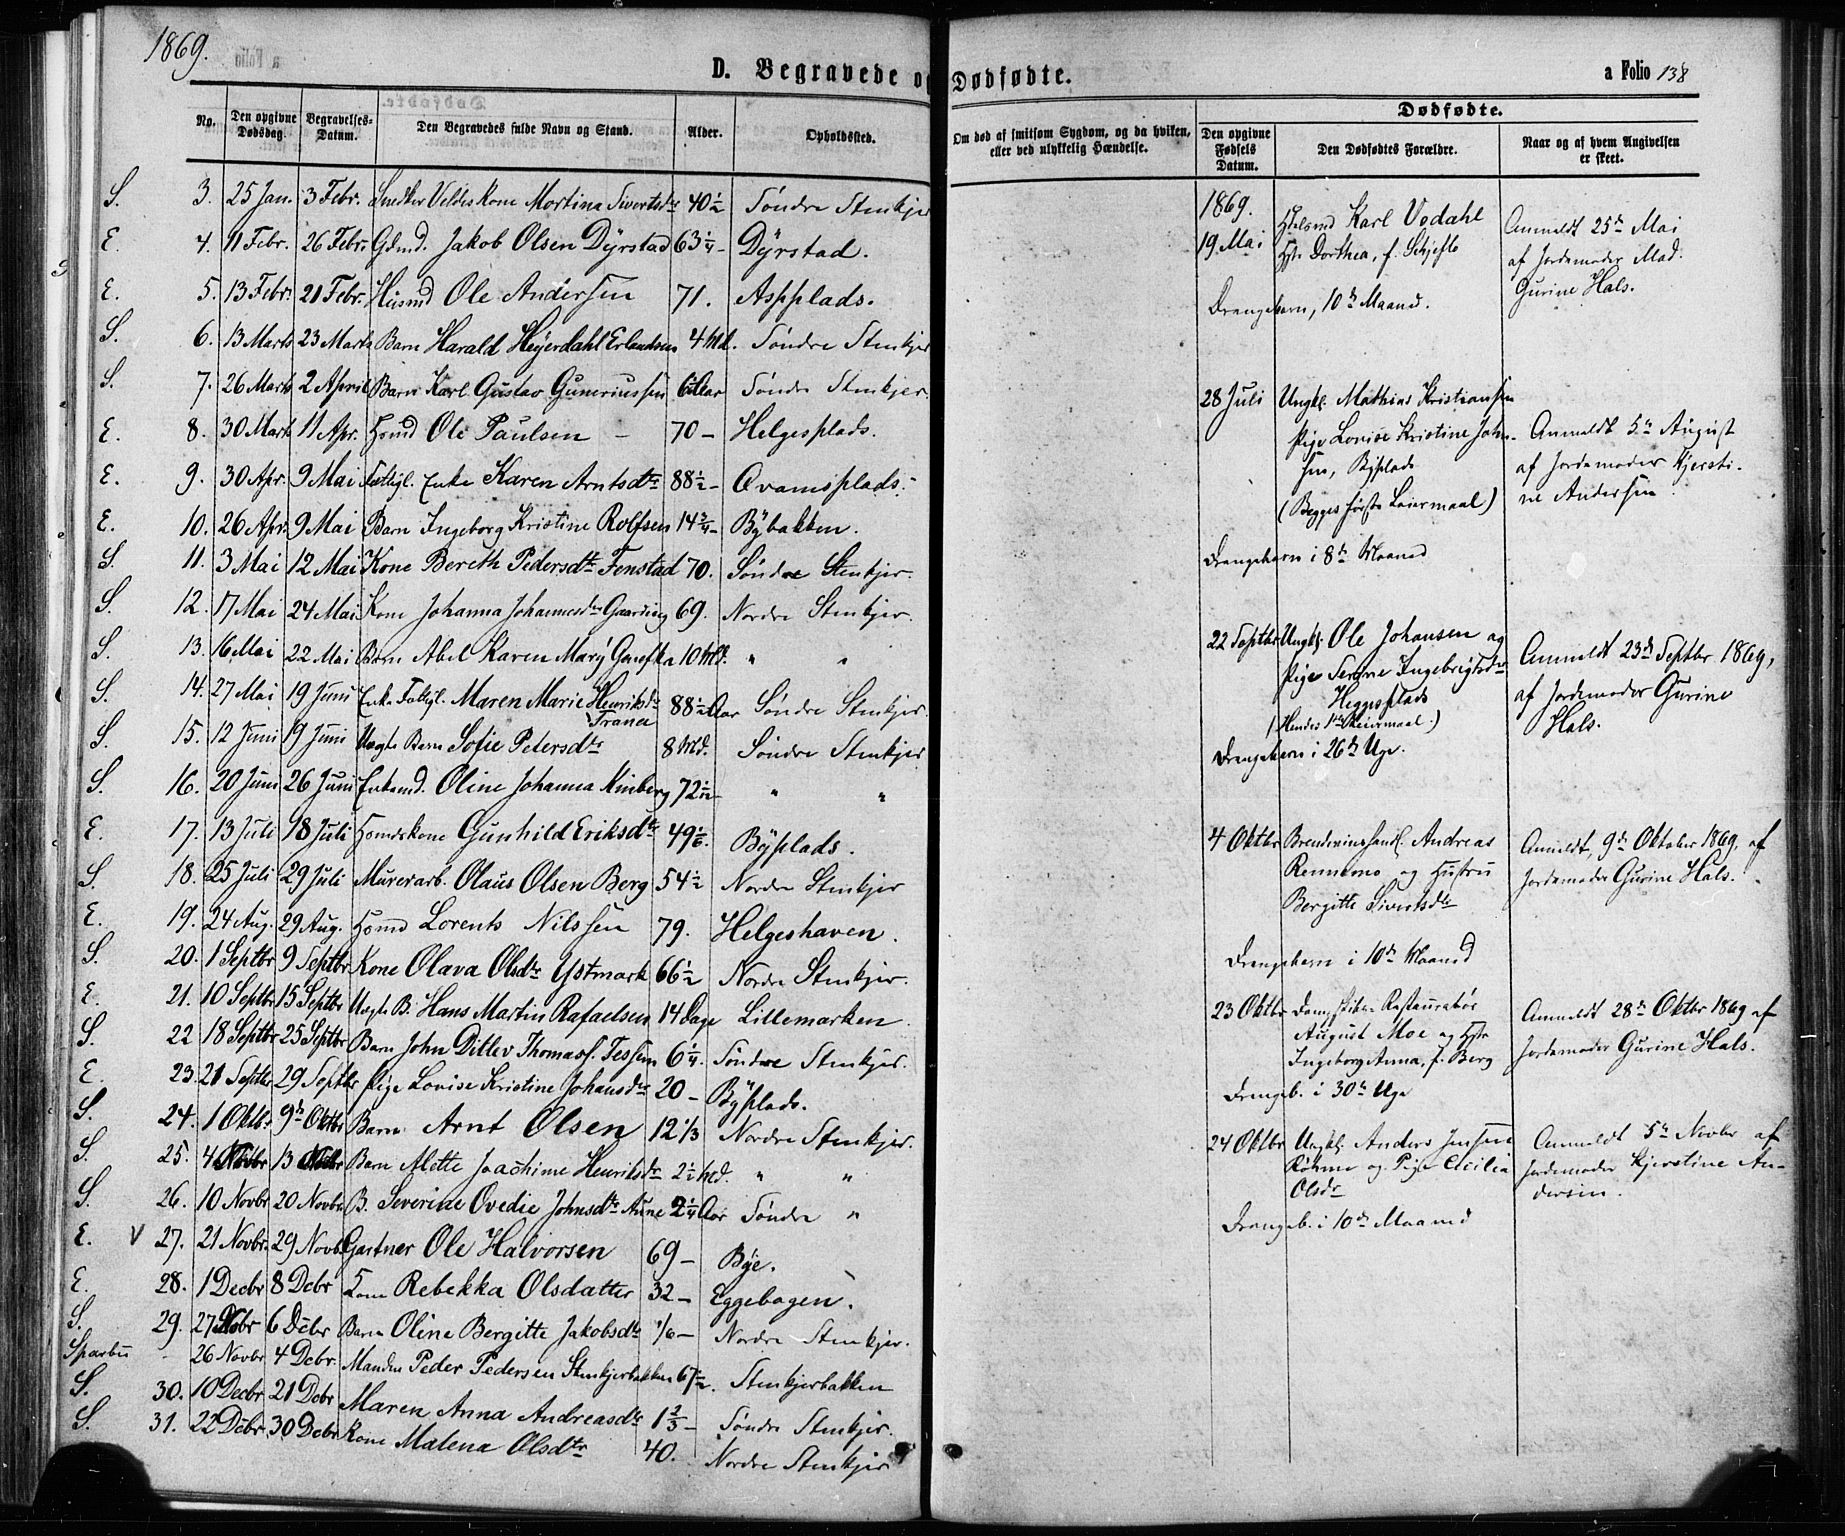 1869.
D. Begravede og Dødfødte.
a Folio 138
No. | Den opgivne Dødsdag. | Begravelses-Datum. | Den Begravedes fulde Navn og Stand. | Alder. | Opholdssted.
S. 3. 25 Jan. 3 Febr. Snedker Veldes Kone Martina Sivertsdtr 40 1/2 Søndre Stenkjer
E. 4. 11 Febr. 26 Febr. Gdmd. Jakob Olsen Dÿrstad 63 1/4 - Dÿrstad.
E. 5. 13 Febr. 21 Febr. Husmd Ole Andersen 71. Aspplads.
S. 6. 13 Marts 23 Marts Barn Harald Heÿerdahl Erlandsen 4 Md. Søndre Stenkjer
S. 7. 26 Marts 2 April Barn Karl Gustav Gunerius sen 6 Aar Søndre Stenkjer.
E. 8. 30 Marts 11 Apr. Hsmd Ole Paulsen - 70 - Helgesplads.
E. 9. 30 Apr. 9 Mai Fattigl. Enke Karen Arntsdtr 88 1/2 - Qvamsplads.
E. 10. 26 Apr. 9 Mai Barn Ingeborg Kristine Rolfsen 14 3/4 - Bÿbakken.
S. 11. 3 Mai 12 Mai Kone Bereth Pedersdtr Fenstad 70. Søndre Stenkjer.
S. 12. 17 Mai 24 Mai Kone Johanna Johannesdtr Gaarding 69. Nordre Stenkjer.
S. 13. 16 Mai 22 Mai Barn Abel Karen Marÿ 10 Md. " "
S. 14. 27 Mai 19 Juni Enke Fattigl. Maren Marie Henriksdtr Trana 88 1/2 Aar Søndre Stenkjer.
S. 15. 12 Juni 19 Juni Uægte Barn Sofie Petersdtr 8 Md. Søndre Stenkjer
S. 16. 20 Juni 26 Juni Enkemd. Oline Johanna Minberg 72 " "
E. 17. 13 Juli 18 Juli Hsmdskone Gunhild Eriksdtr 49 Bÿplads.
S. 18. 25 Juli 29 Juli Murerarb. Olaus Olsen Berg 54 1/2 Nordre Stenkjer
E. 19. 24 Aug. 29 Aug. Hsmd Lorents Nilssen 79. Helgeshaven.
S. 20. 1 Septbr 9 Septbr Kone Olava Olsdtr Ystmark 66 1/2 Nordre Stenkjer.
E. 21. 10 Septbr 15 Septbr Uægte B. Hans Martin Rafaelsen 14 Dage Lillemarken.
S. 22 18 Septbr 25 Septbr Barn John Ditlev Thomass. Tessem 6 1/4. Søndre Stenkjer.
E. 23. 21 Septbr 29 Septbr Pige Lovise Kristine Johansdtr 20 - Bÿplads.
S. 24. 1 Oktbr 9de Oktbr Barn Arnt Olsen 12 1/3 Nordre Stenkjer.
S. 25. 4 Novbr 13 Novbr Barn Mette Joachime Henriksdtr 2 1/2 Md. " "
S. 26. 10 Novbr 20 Novbr B. Severine Ovedie Johnsdtr Aune 2 1/4 Aar Søndre "
E. V 27. 21 Novbr. 29 Novb. Gartner Ole Halvorsen 69 - Bÿe.
E. 28. 1 Decbr 8 Dcbr Kone Rebekka Olsdatter 32 - Eggebogen.
S. 29. 27 Novbr 6 Dcbr Barn Oline Bergitte Jakobsdtr 1/6 - Nordre Stenkjer.
Sparbu - 26 Novbr 4 Dcbr. Manden Peder Pedersen Stenkjerbakken 67 1/2. Stenkjerbakken
S. 30. 10 Decbr 21 Dcbr Maren Anna Andreasdtr 1 2/3 - Søndre Stenkjer.
S. 31. 22 Dcbr. 30 Dcbr Kone Malena Olsdtr 40. Nordre Stenkjer
Om død af smitsom Sygdom, og da hvilken, eller ved ulykkelig Hændelse.
Dødfødte.
Den opgivne Fødsels Datum. | Den Dødfødtes Forældre. | Naar og af hvem Angivelsen er skeet.
1869.
19. Mai
Karl Vodahl
Hstr Dorthea, f. Schjefte
Drengebarn, 10de Maaned.
Anmeldt 25de Mai
af Jordemoder Mad.
Gurine Hals.
28 Juli
Ungkl. Mathias Kristiansen
Pige Lovise Kristine John-
sen, Bÿplads
(Begges første Leiermaal)
Drengebarn i 8de Maaned
Anmeldt 5te August
af Jordemoder Kjersti-
ne Andersen.
22 Septbr
Ungkl. Ole Johansen og
Pige Serine Ingebrigtsdtr
Heggesplads
(Hendes 1ste Leiermaal.)
Drengebarn i 26de Uge.
Anmeldt 23de Septbr 1869,
af Jordemoder Gurine
Hals.
4 Oktbr
Brendevinshandl. Andreas
Rennemo og Hustru
Bergitte Sivertsdtr
Drengebarn i 10de Maaned
Anmeldt, 9de Oktober 1869, af
Jordemoder Gurine Hals.
23 Oktbr
Dampskibs Restauratør
August Moe og Hstr
Ingeborg Anna, f. Berg
Drengeb. i 30te Uge
Anmeldt 28de Oktbr 1869 af
Jordemoder Gurine Hals.
24 Oktbr
Ungkl. Anders Jensen
Røhme og Pige Cicilia
Olsdtr
Drengeb. i 10de Maaned
Anmeldt 5te Novbr af
Jordemoder Kjerstine An-
dersen.